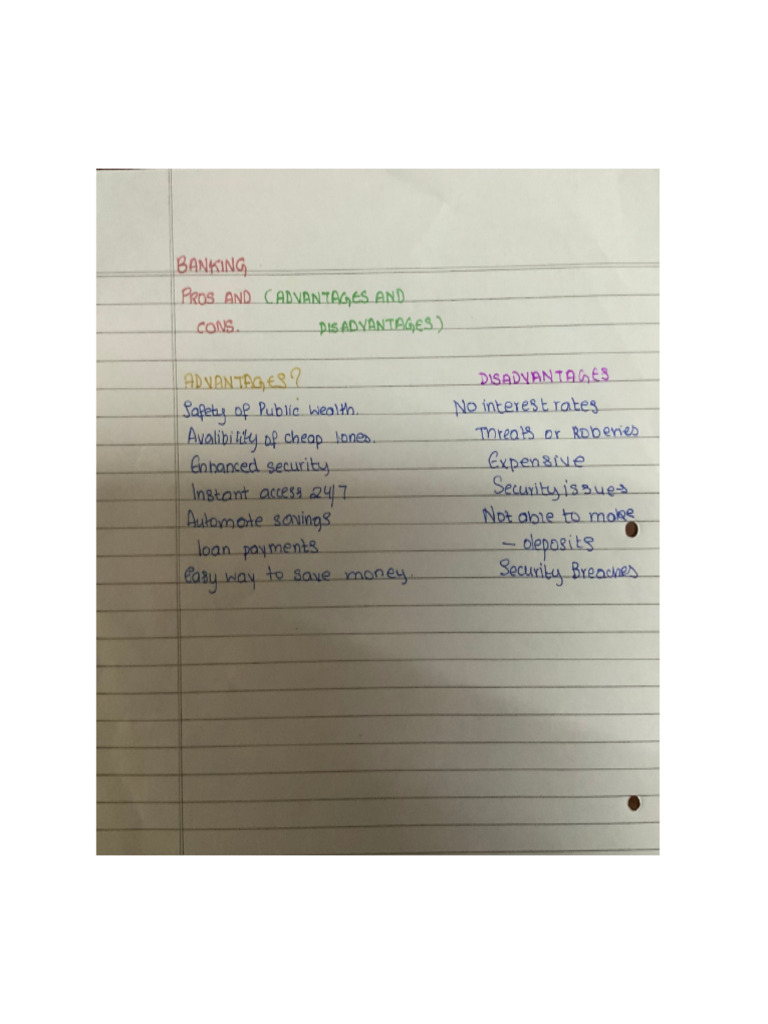 BANKING
PROS AND (ADVANTAGES AND
CONS. DISADVANTAGES)
ADVANTAGES? DISADVANTAGES
Safety of Public Wealth. No interest rates
Avalibility of cheap lones. Threats or Roberies
Enhanced security Expensive
Instant access 24/7 Security issues
Automate savings Not able to make
loan payments – deposits
Easy way to save money. Security Breaches